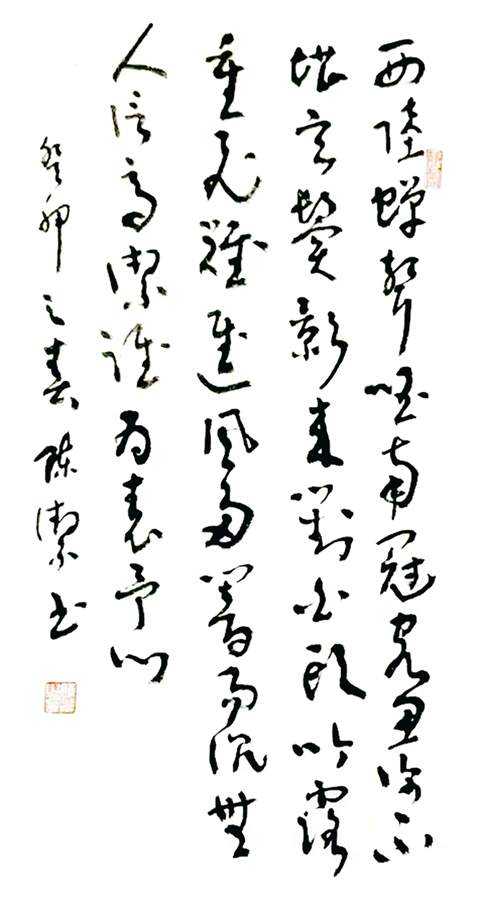 西陸蟬聲唱南冠客思深不
堪玄鬢影来對白頭吟露
重飛難進風多響易沉無
人信高潔誰為表予心
癸卯之春陳潔书